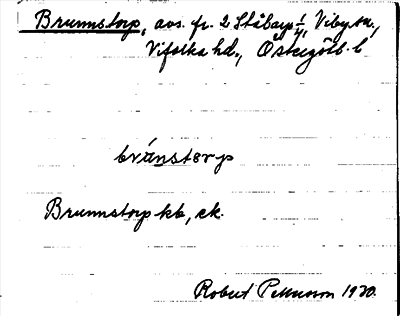 Brunnstorp, avs. fr. 2 Ståbarp 1/4, Viby sn.,
Vifolka hd., Östergötl. l.
brünsterp
Brunnstorp kb, ek.
Robert Pettersson 1930.